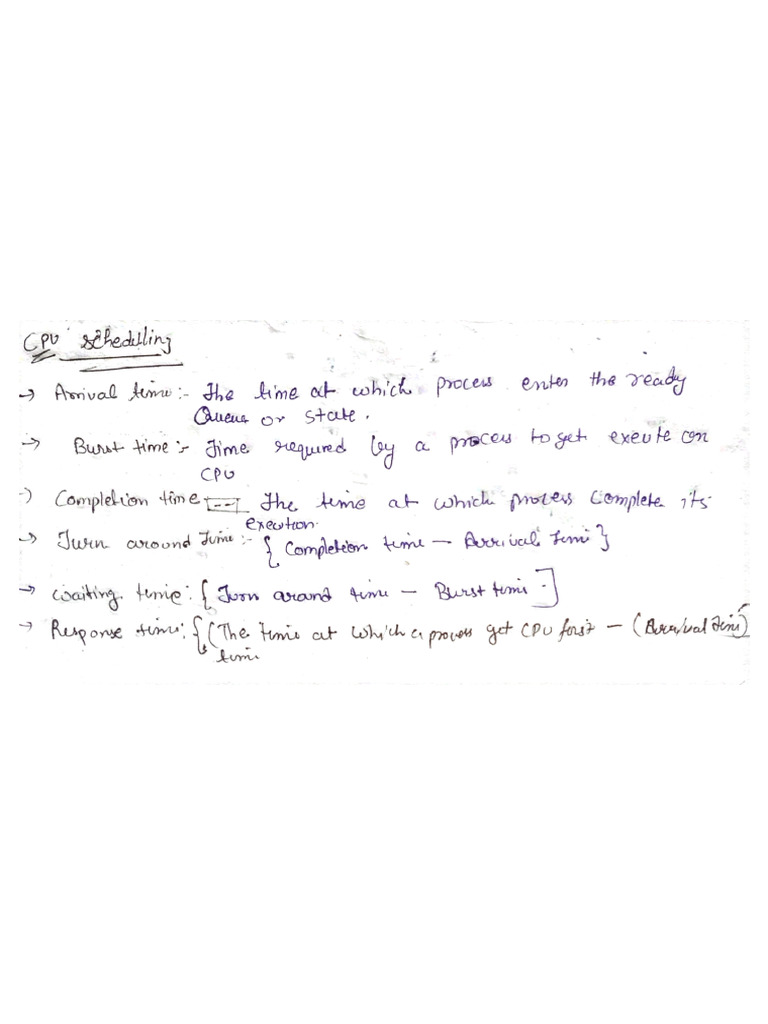 CPU Scheduling
→ Arrival time :- The time at which process enter the ready
Queue or state.
→ Burst time :- Time required by a process to get exeute on
CPU
→) Completion time [---] The time at which process Complete its
exection.
→ Turn around Time :- { Completion time — Arrival Time }
→ Waiting time : { Turn around time — Burst time ]
→ Response time : { (The time at which a process get CPU first — (Arrival Time)
time